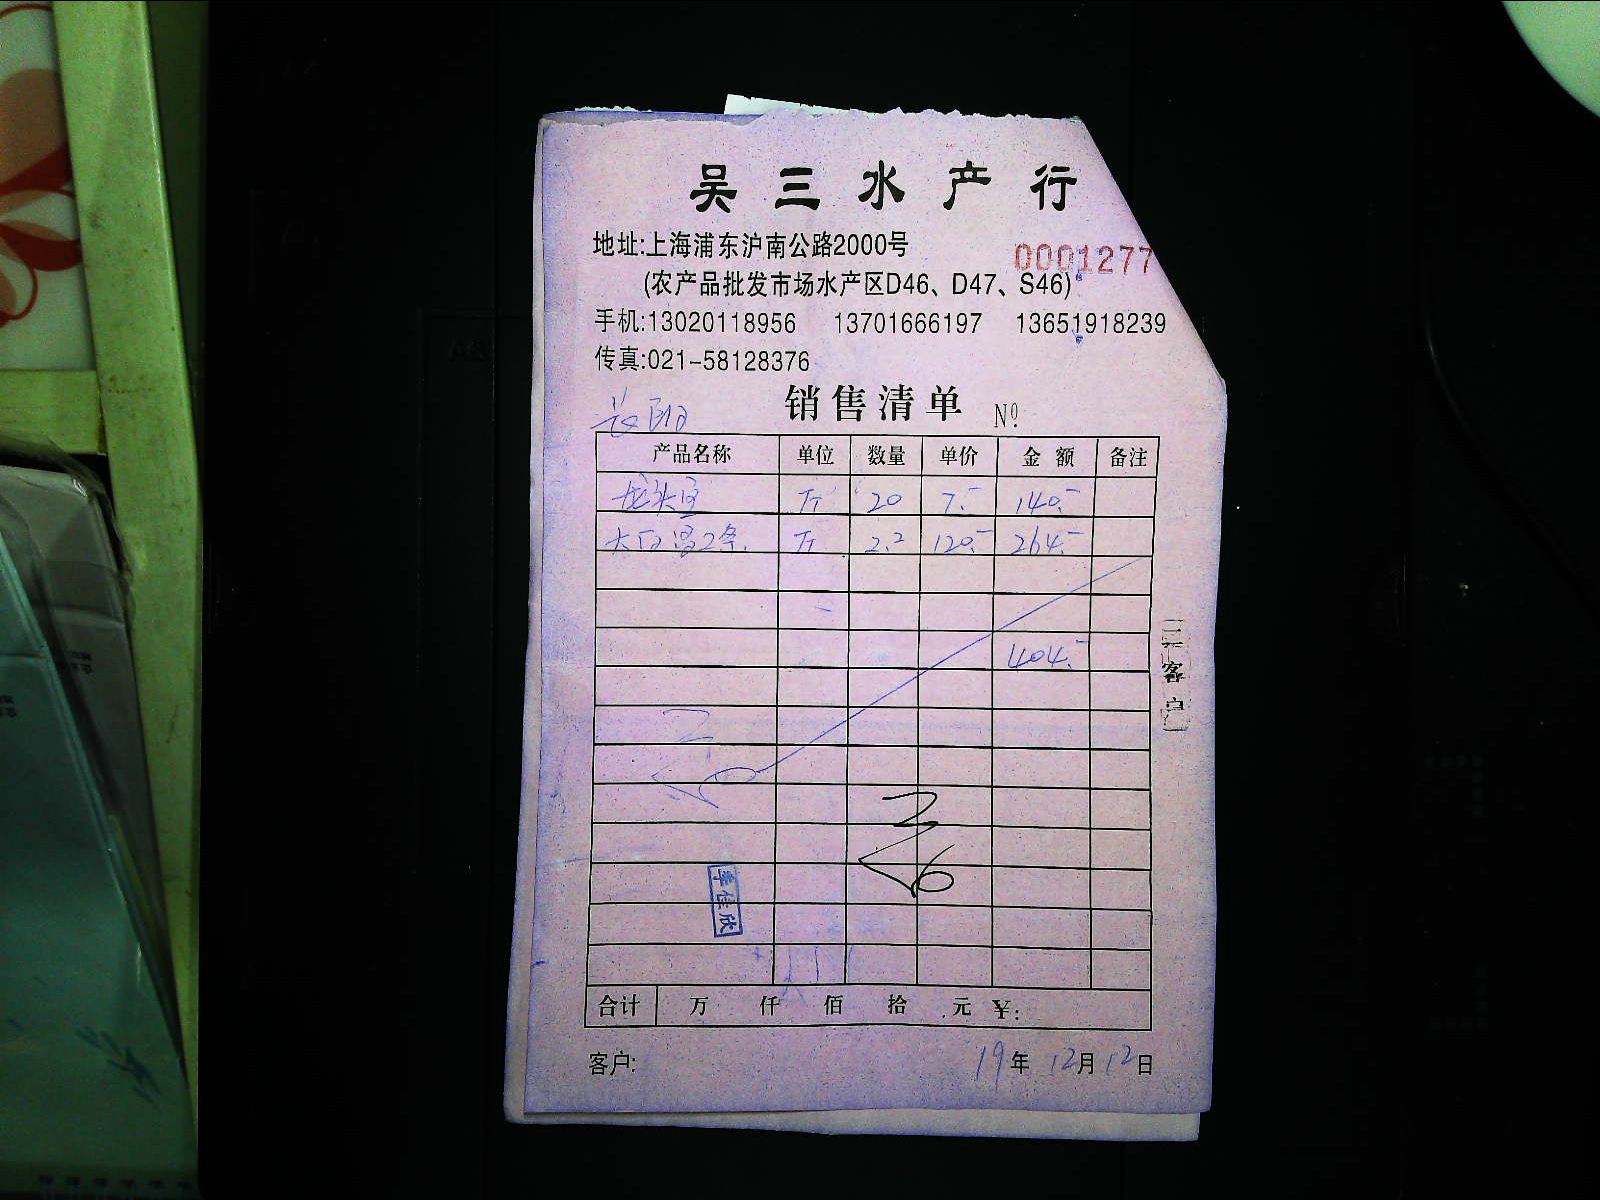 吴三水产行
地址:上海浦东沪南公路2000号
0001277
(农产品批发市场水产区D46、D47、S46)
手机:13020118956 13701666197 13651918239
传真:021-58128376
销售清单 №
产品名称 单位 数量 单价 金额 备注
龙头 斤 20 7.- 140.-
大白 2条. 斤 2.2 120.- 264.-
404.-
二 客户
合计 万 仟 佰 拾 元 ¥:
客户: 19年 12月 12日